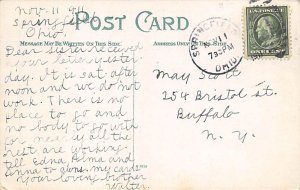 Nov. 11 9 11
Springfield
Ohio.
POST CARD
MESSAGE MAY BE WRITTEN ON THIS SIDE.
ADDRESS ONLY ON THIS SIDE.
SPRINGFIELD
NOV 11
7 30 PM
OHIO
Dear Sister received
your letter yester
day. It is sat. after
noon and we do not
work. There is no
place to go and
no body to go with
for me as all the
rest are working
tell Edna, Alma and
Emma to glons my card.
Your loving brother
Walter.
May Scott
254 Bristol st.
Buffalo
N. Y.